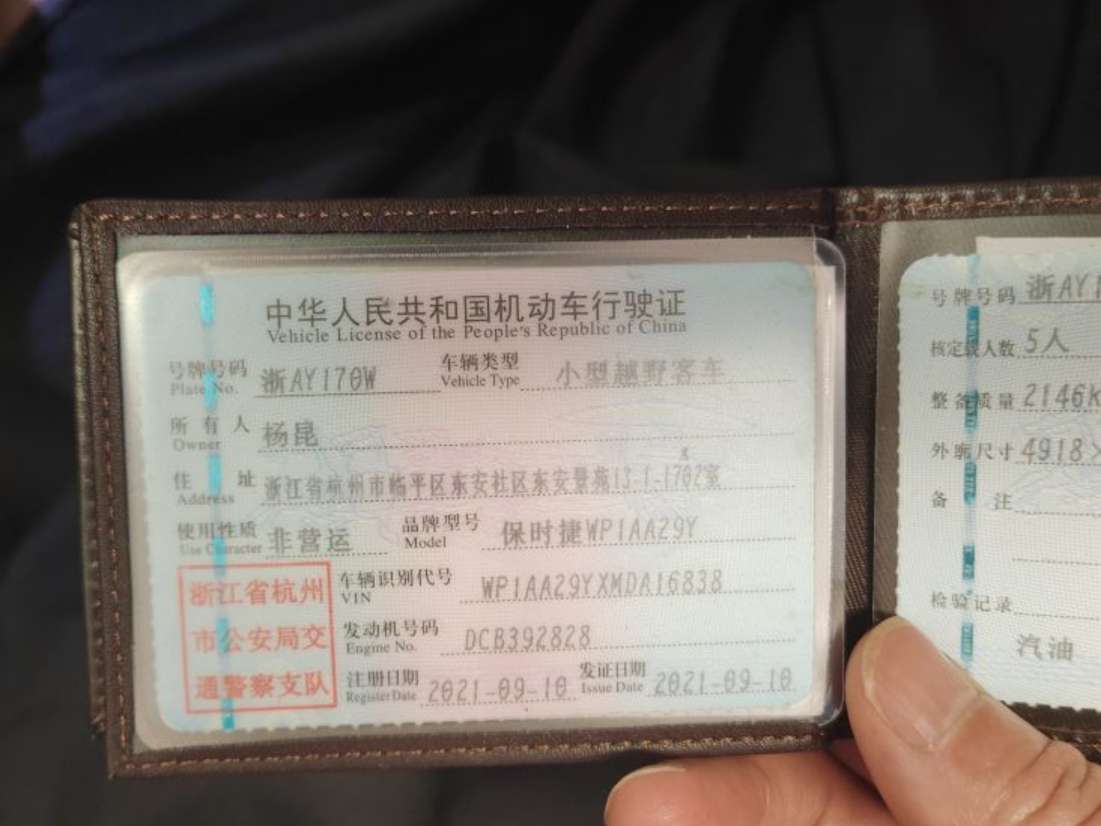 中华人民共和国机动车行驶证
Vehicle License of the People's Republic of China
号牌号码 Plate No. 浙AY170W 车辆类型 Vehicle Type 小型越野客车
所有人 Owner 杨昆
住址 Address 浙江省杭州市临平区东安社区东安景苑13-1-1702室
使用性质 Use Character 非营运 品牌型号 Model 保时捷WP1AA29Y
车辆识别代号 VIN WP1AA29YXMDA16838
发动机号码 Engine No. DCB392828
注册日期 Register Date 2021-09-10 发证日期 Issue Date 2021-09-10
浙江省杭州
市公安局交
通警察支队
号牌号码 浙AY1
核定载人数 5人
整备质量 2146k
外廓尺寸 4918×
备注
检验记录
汽油